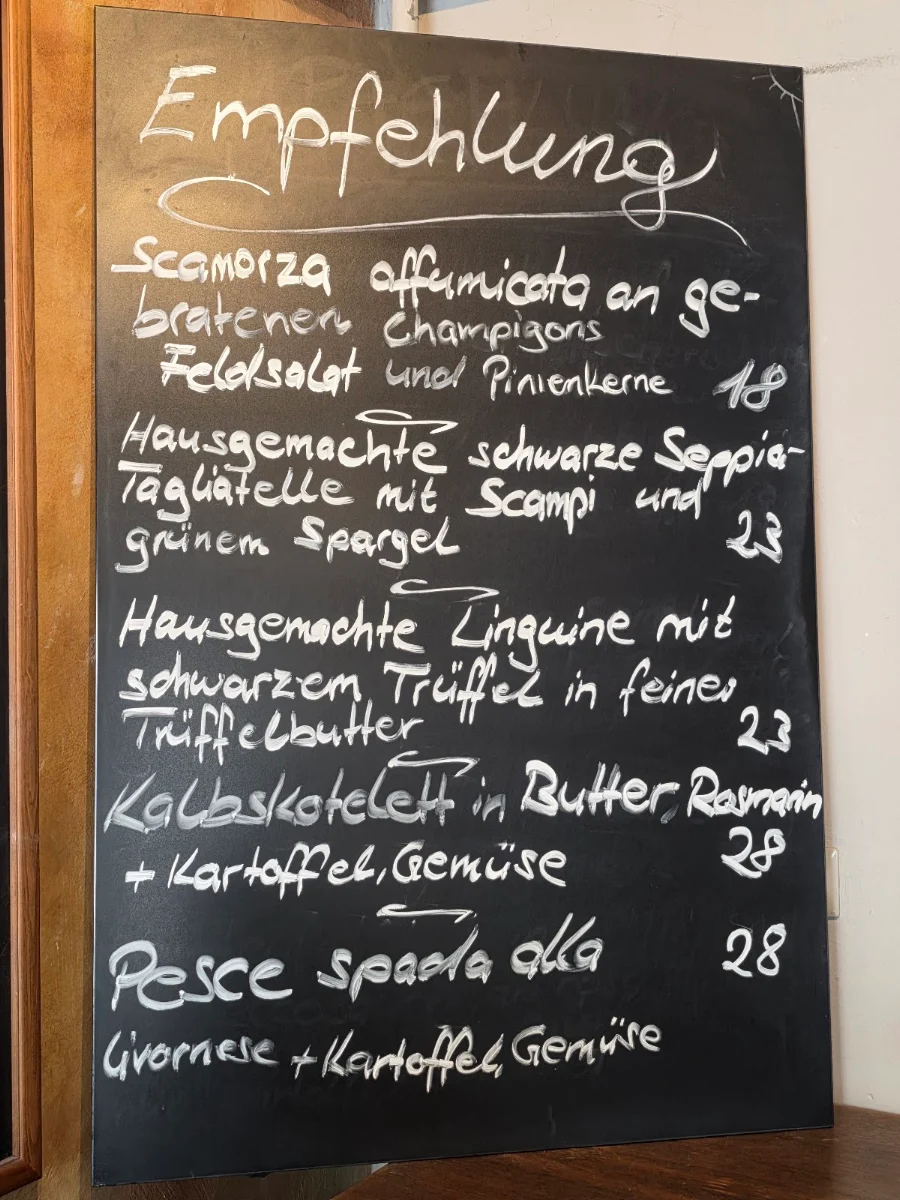 Empfehlung
Scamorza affumicata an ge-
bratenen Champigons
Feldsalat und Pinienkerne 18
Hausgemachte schwarze Seppia-
Tagliatelle mit Scampi und
grünem Spargel 23
Hausgemachte Linguine mit
schwarzem Trüffel in feiner
Trüffelbutter 23
Kalbskotelett in Butter, Rosmarin
+ Kartoffel, Gemüse 28
Pesce spada alla 28
Livornese + Kartoffel, Gemüse